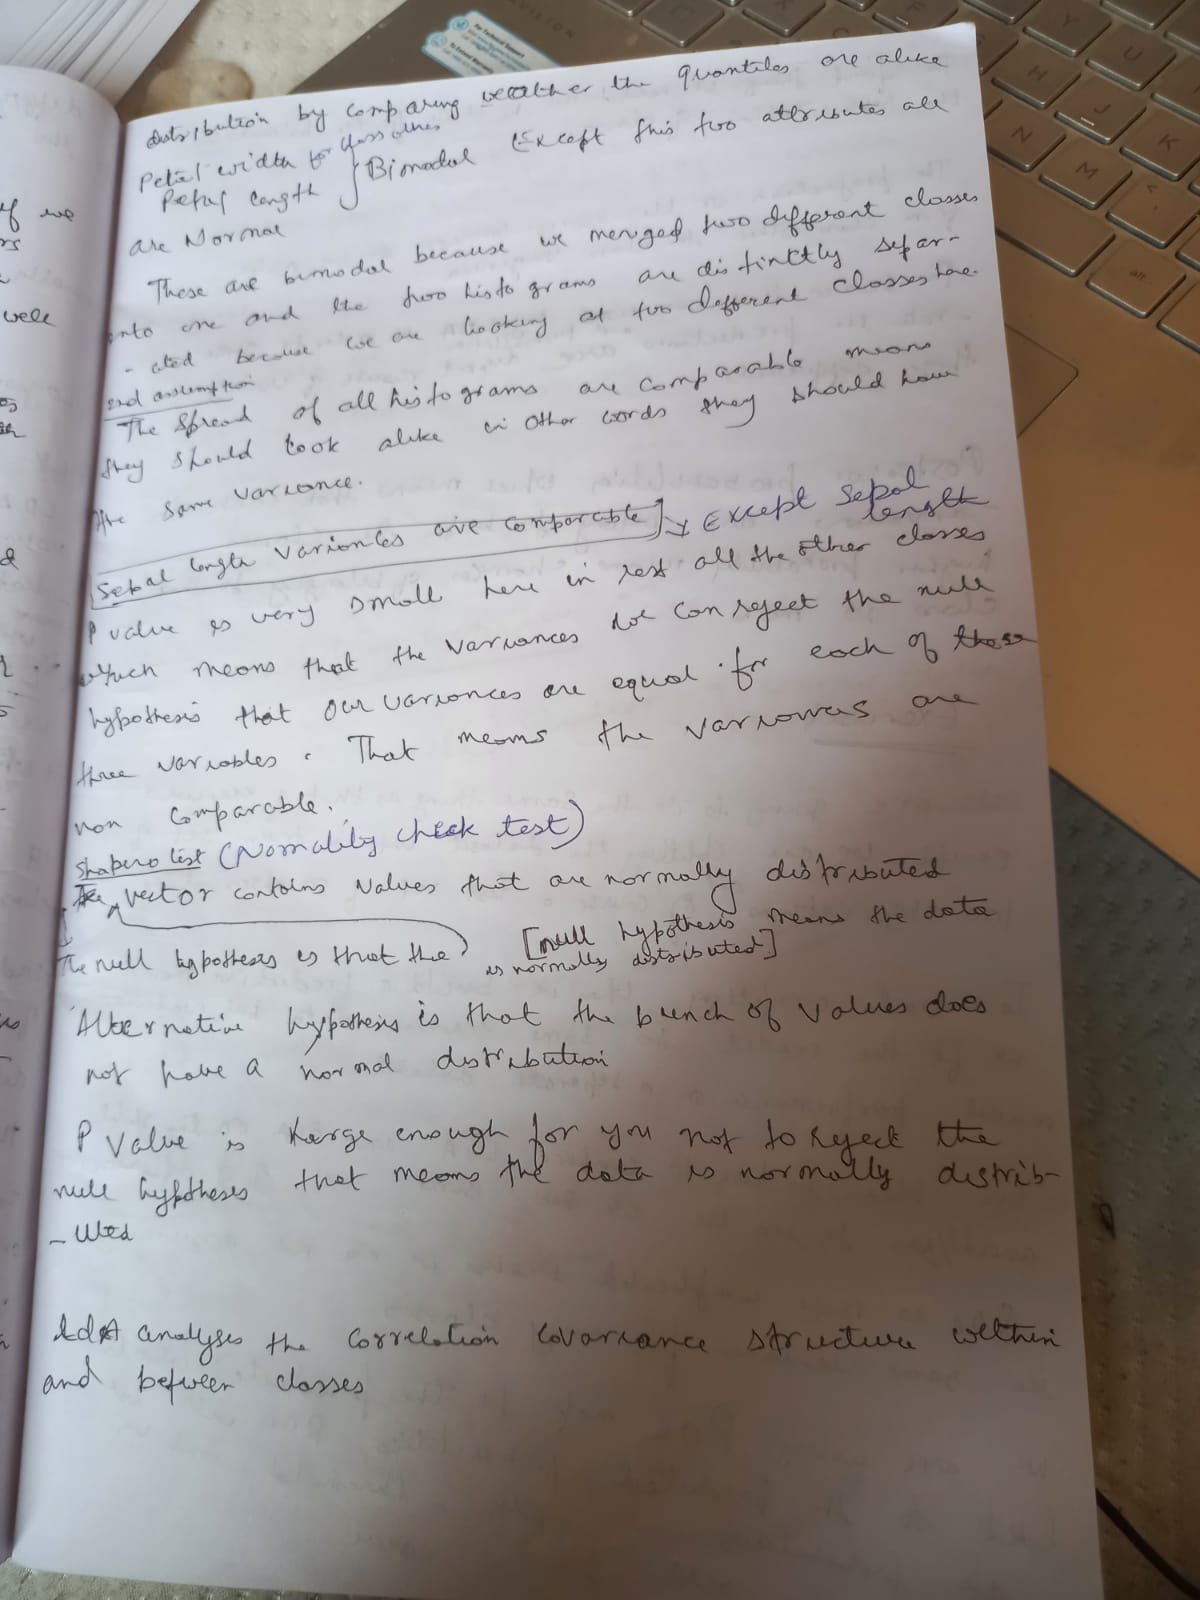 PAVILION
For Technical Support
distribution by comparing weather the quantiles are alike
Petal width for class others
Petal length } Bimodal (Except this two attributes all
are Normal
These are bimodal because we merged two different classes
into one and the two histograms are distinctly separ-
- ated because we are looking at two different classes here.
2nd assumption
The spread of all histograms are comparable means
they should look alike in other words they should have
the same variance.
Sepal length variances are comparable → Except sepal
length
P value is very small here in rest all the other classes
which means that the variances we can reject the null
hypothesis that our variances are equal for each of these
three variables. That means the variances are
non comparable.
Shapiro test (Normality check test)
The vector contains values that are normally distributed
The null hypothesis is that the [null hypothesis means the data
is normally distributed]
Alternative hypothesis is that the bunch of values does
not have a normal distribution
P value is large enough for you not to reject the
null hypotheses that means the data is normally distrib-
- uted
LDA analyses the correlation covariance structure within
and between classes
if we
well
Y
U
H
J
N
M
K
alt